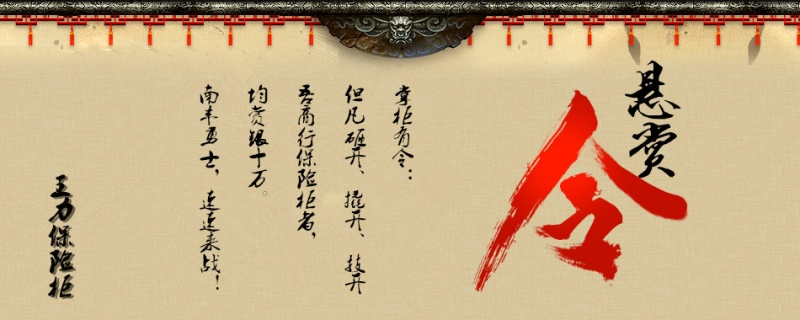 悬赏
令
掌柜有令：
但凡砸开、撬开、技开
吾商行保险柜者，
均赏银十万。
南丰勇士，速速来战！
王力保险柜